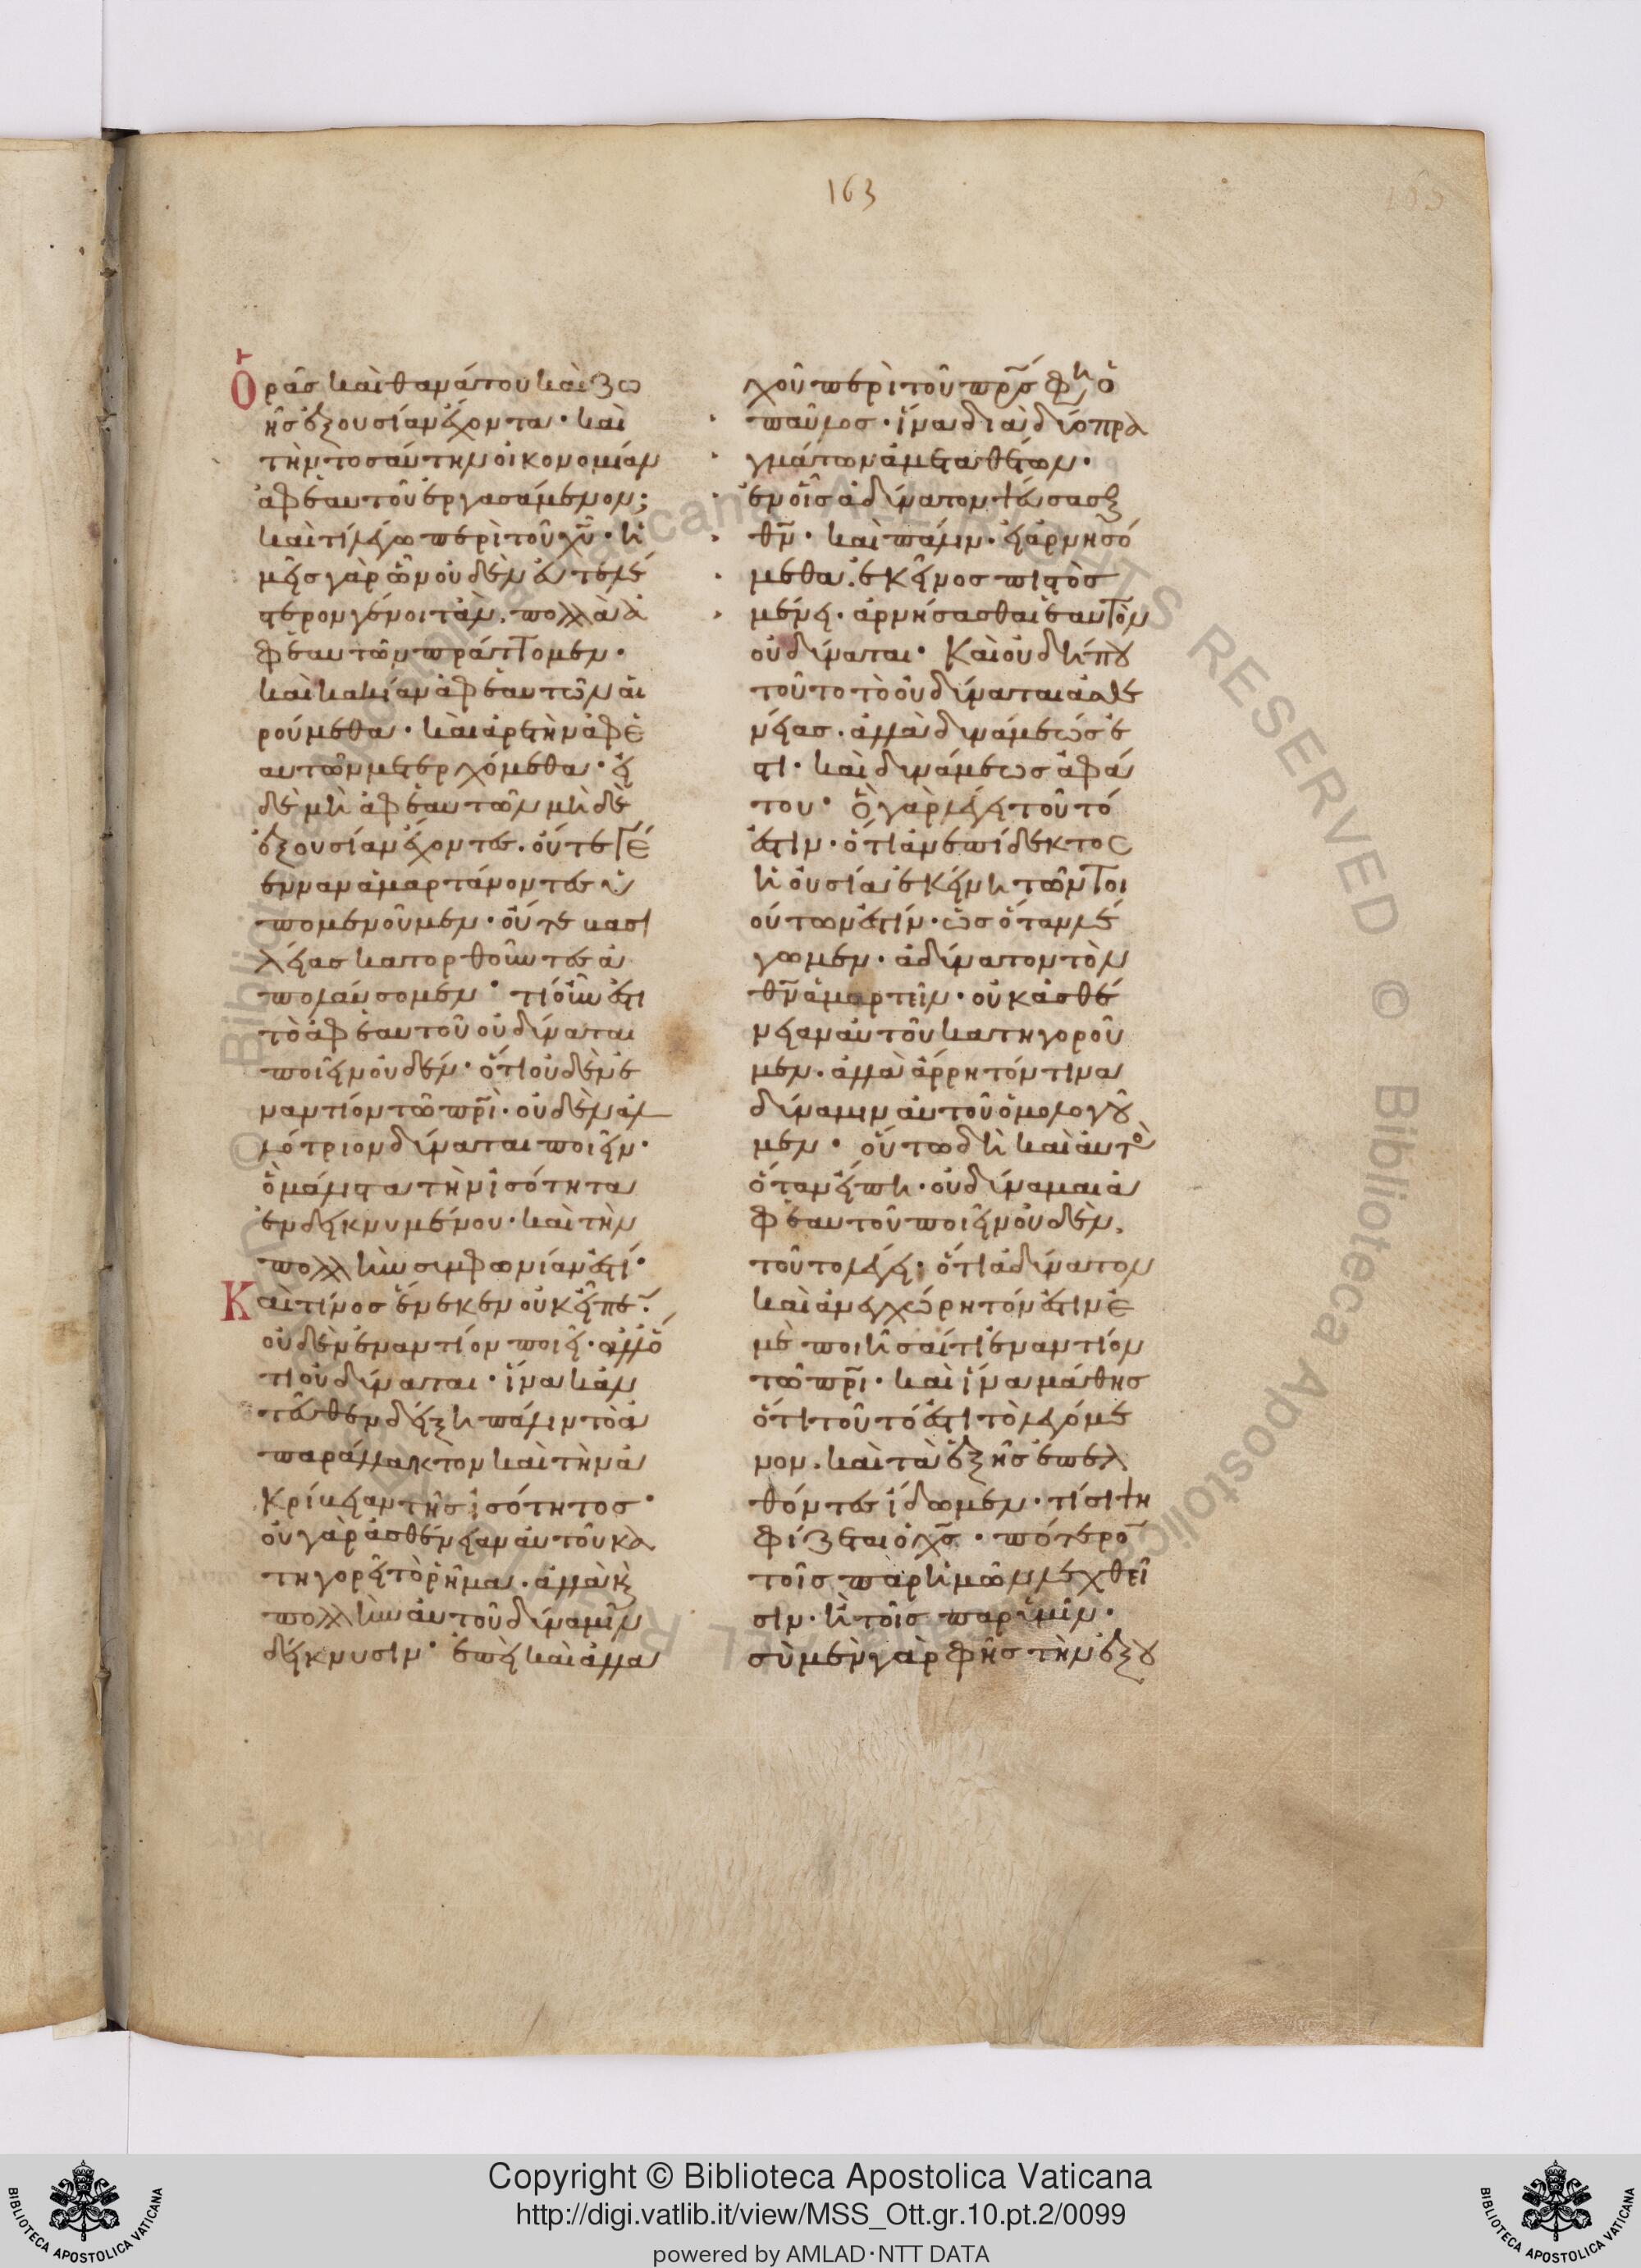 163
Ὁρᾶς καὶ θανάτου καὶ ζω
ῆς ἐξουσίαν ἔχοντα· καὶ
τὴν τοσαύτην οἰκονομίαν
ἀφ' ἑαυτοῦ ἐργασάμενον;
καὶ τί λέγω περὶ τοῦ χῦ· ἡ
μεῖς γὰρ ὧν οὐδὲν εὐτελέ
στερον γένοιτ' ἂν, πολλὰ ἀ
φ' ἑαυτῶν πράττομεν·
καὶ κακίαν ἀφ' ἑαυτῶν αἱ
ρούμεθα· καὶ ἀρετὴν ἀφ' ἑ
αυτῶν μετερχόμεθα· εἰ
δὲ μὴ ἀφ' ἑαυτῶν μὴ δὲ
ἐξουσίαν ἔχοντες. οὔτε γέ
ενναν ἁμαρτάνοντες ὑ
πομενοῦμεν· οὔτε βασι
λείας κατορθοῦντες ἀ
πολαύσομεν· τί οὖν ἐστι
τὸ ἀφ' ἑαυτοῦ οὐ δύναται
ποιεῖν οὐδέν· ὅτι οὐδὲν ἐ
ναντίον τῶ πρὶ· οὐδὲν ἀλ
λότριον δύναται ποιεῖν·
ὃ μάλιστα τὴν ἰσότητα
ἐνδεικνυμένου· καὶ τὴν
πολλὴν συμφωνίαν ἐστί·
Καὶ τίνος ἕνεκεν οὐκ εἶπεν·
οὐδὲν ἐναντίον ποιεῖ· ἀλλ' ὅ
τι οὐ δύναται· ἵνα κἀν
τεῦθεν δείξη πάλιν τὸ ἀ
παράλλακτον καὶ τὴν ἀ
κρίβειαν τῆς ἰσότητος·
οὐ γὰρ ἀσθένειαν αὐτοῦ κα
τηγορεῖ τὸ ῥῆμα. ἀλλὰ καὶ
πολλὴν αὐτοῦ δύναμιν
δείκνυσιν· ἐπεὶ καὶ ἀλλα
χοῦ περὶ τοῦ πρς φησὶν ὁ
παῦλος· ἵνα διὰ δύο πρα
γμάτων ἀμεταθέτων·
ἐν οἷς ἀδύνατον ψεύσασθαι
θν· καὶ πάλιν· εἰ ἀρνησό
μεθα. ἐκεῖνος πιστὸς
μένει· ἀρνήσασθαι ἑαυτὸν
οὐ δύναται· Καὶ οὐ δή που
τοῦτο τὸ οὐ δύναται ἀσθε
νείας. ἀλλὰ δυνάμεώς ἐ
στι· καὶ δυνάμεως ἀφά
του· ὃ γὰρ λέγει τοῦτό
ἐστιν· ὅτι ἀνεπίδεκτος
ἡ οὐσία ἐκείνη τῶν τοι
ούτων ἐστίν· ὡς ὅταν λέ
γωμεν· ἀδύνατον τὸν
θν ἁμαρτεῖν· οὐκ ἀσθέ
νειαν αὐτοῦ κατηγοροῦ
μεν. ἀλλὰ ἄρρητόν τινα
δύναμιν αὐτοῦ ὁμολογοῦ
μεν· οὕτω δὴ καὶ αὐτὸς
ὅταν εἴπη· οὐ δύναμαι ἀ
φ' ἑαυτοῦ ποιεῖν οὐδὲν,
τοῦτο λέγει· ὅτι ἀδύνατον
καὶ ἀνεγχώρητόν ἐστιν ἐ
μὲ ποιῆσαί τι ἐναντίον
τῶ πρι· καὶ ἵνα μάθης
ὅτι τοῦτό ἐστι τὸ λεγόμε
νον. καὶ τὰ ἑξῆς ἐπελ
θόντες ἴδωμεν· τίσι ψη
φίζεται ὁ χς· πότερον
τοῖς παρ' ἡμῶν λεχθεῖ
σιν· ἢ τοῖς παρ' ὑμῖν·
σὺ μὲν γὰρ φῆς τὴν ἐξου
Copyright © Biblioteca Apostolica Vaticana
http://digi.vatlib.it/view/MSS_Ott.gr.10.pt.2/0099
powered by AMLAD·NTT DATA